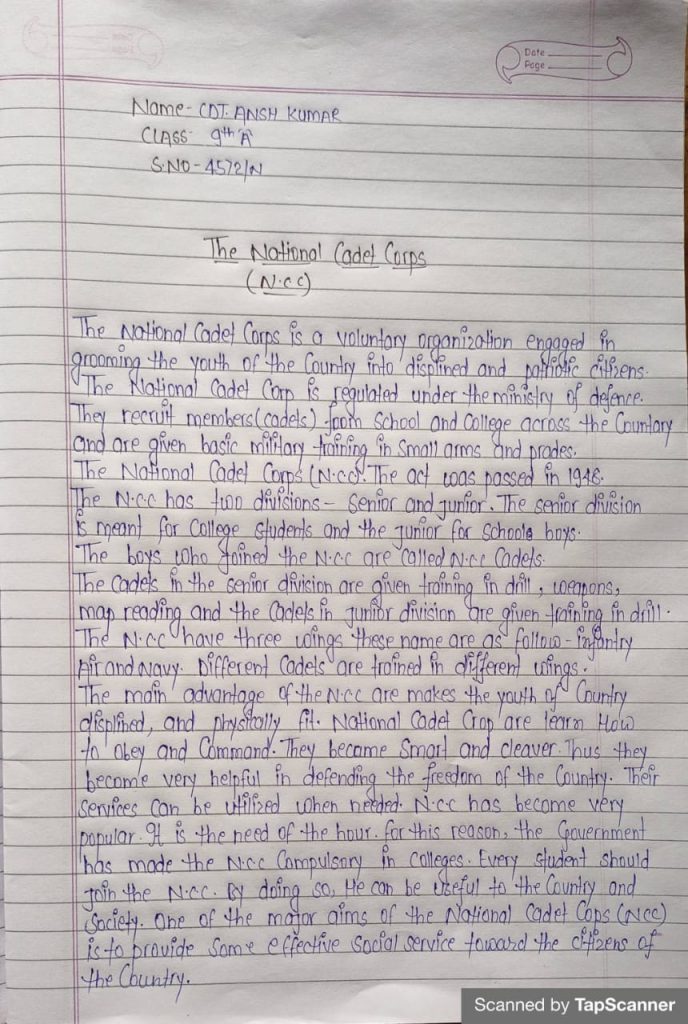 Date
Page
Name- CDT. ANSH KUMAR
CLASS- 9th 'A'
S.NO- 4572/N
The National Cadet Corps
(N.C.C)
The National Cadet Corps is a voluntary organization engaged in
grooming the youth of the Country into displined and patriotic citizens.
The National Cadet Corp is regulated under the ministry of defence.
They recruit members(cadets) from School and College across the Countary
and are given basic military training in Small arms and prades.
The National Cadet Corps (N.C.C). The act was passed in 1948.
The N.C.C has two divisions- senior and junior. The senior division
is meant for College students and the junior for schools boys.
The boys who joined the N.C.C are called N.C.C Cadets.
The Cadets in the senior division are given training in drill, weapons,
map reading and the Cadets in junior division are given training in drill.
The N.C.C have three wings these name are as follow- infantry
Air and Navy. Different Cadets are trained in different wings.
The main advantage of the N.C.C are makes the youth of Country
displined, and physically fit. National Cadet Crop are learn How
to obey and Command. They became Smart and cleaver. Thus they
become very helpful in defending the freedom of the Country. Their
Services can be utilized when needed. N.C.C has become very
popular. It is the need of the hour. for this reason, the Government
has made the N.C.C Compulsory in colleges. Every student should
join the N.C.C. By doing so, He can be useful to the Country and
Society. One of the major aims of the National Cadet Cops (NCC)
is to provide some effective social service toward the citizens of
the Country.
Scanned by TapScanner